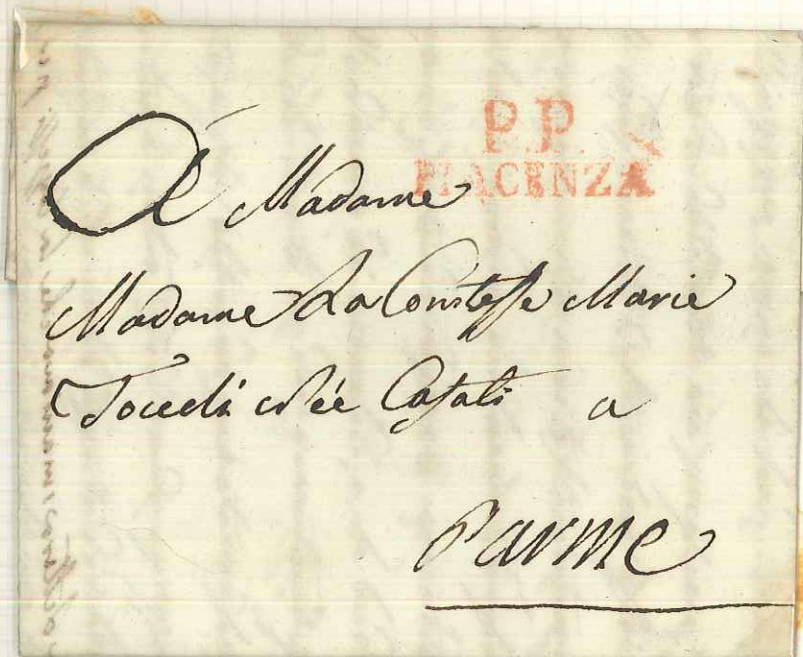 P.P.
PIACENZA
A Madame
Madame La Comtesse Marie
Toccoli née Casati a
Parme